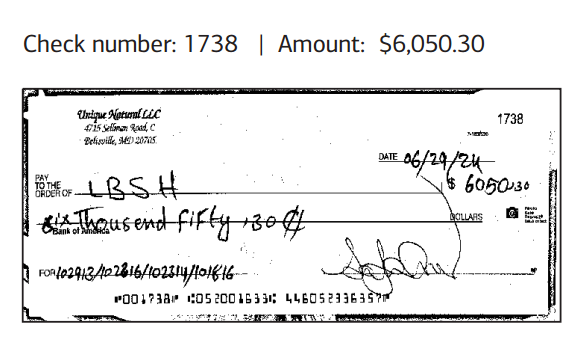 Check number: 1738 | Amount: $6,050.30
Unique Natural LLC
4715 Sellman Road, C
Beltsville, MD 20705
1738
DATE 06/29/24
PAY TO THE ORDER OF LBSH $ 6050.30
six Thousend fifty .30 ₵ DOLLARS
Bank of America
FOR 102913/102816/102314/101616
⑈001738⑈ ⑆052001633⑆ 446052336357⑈